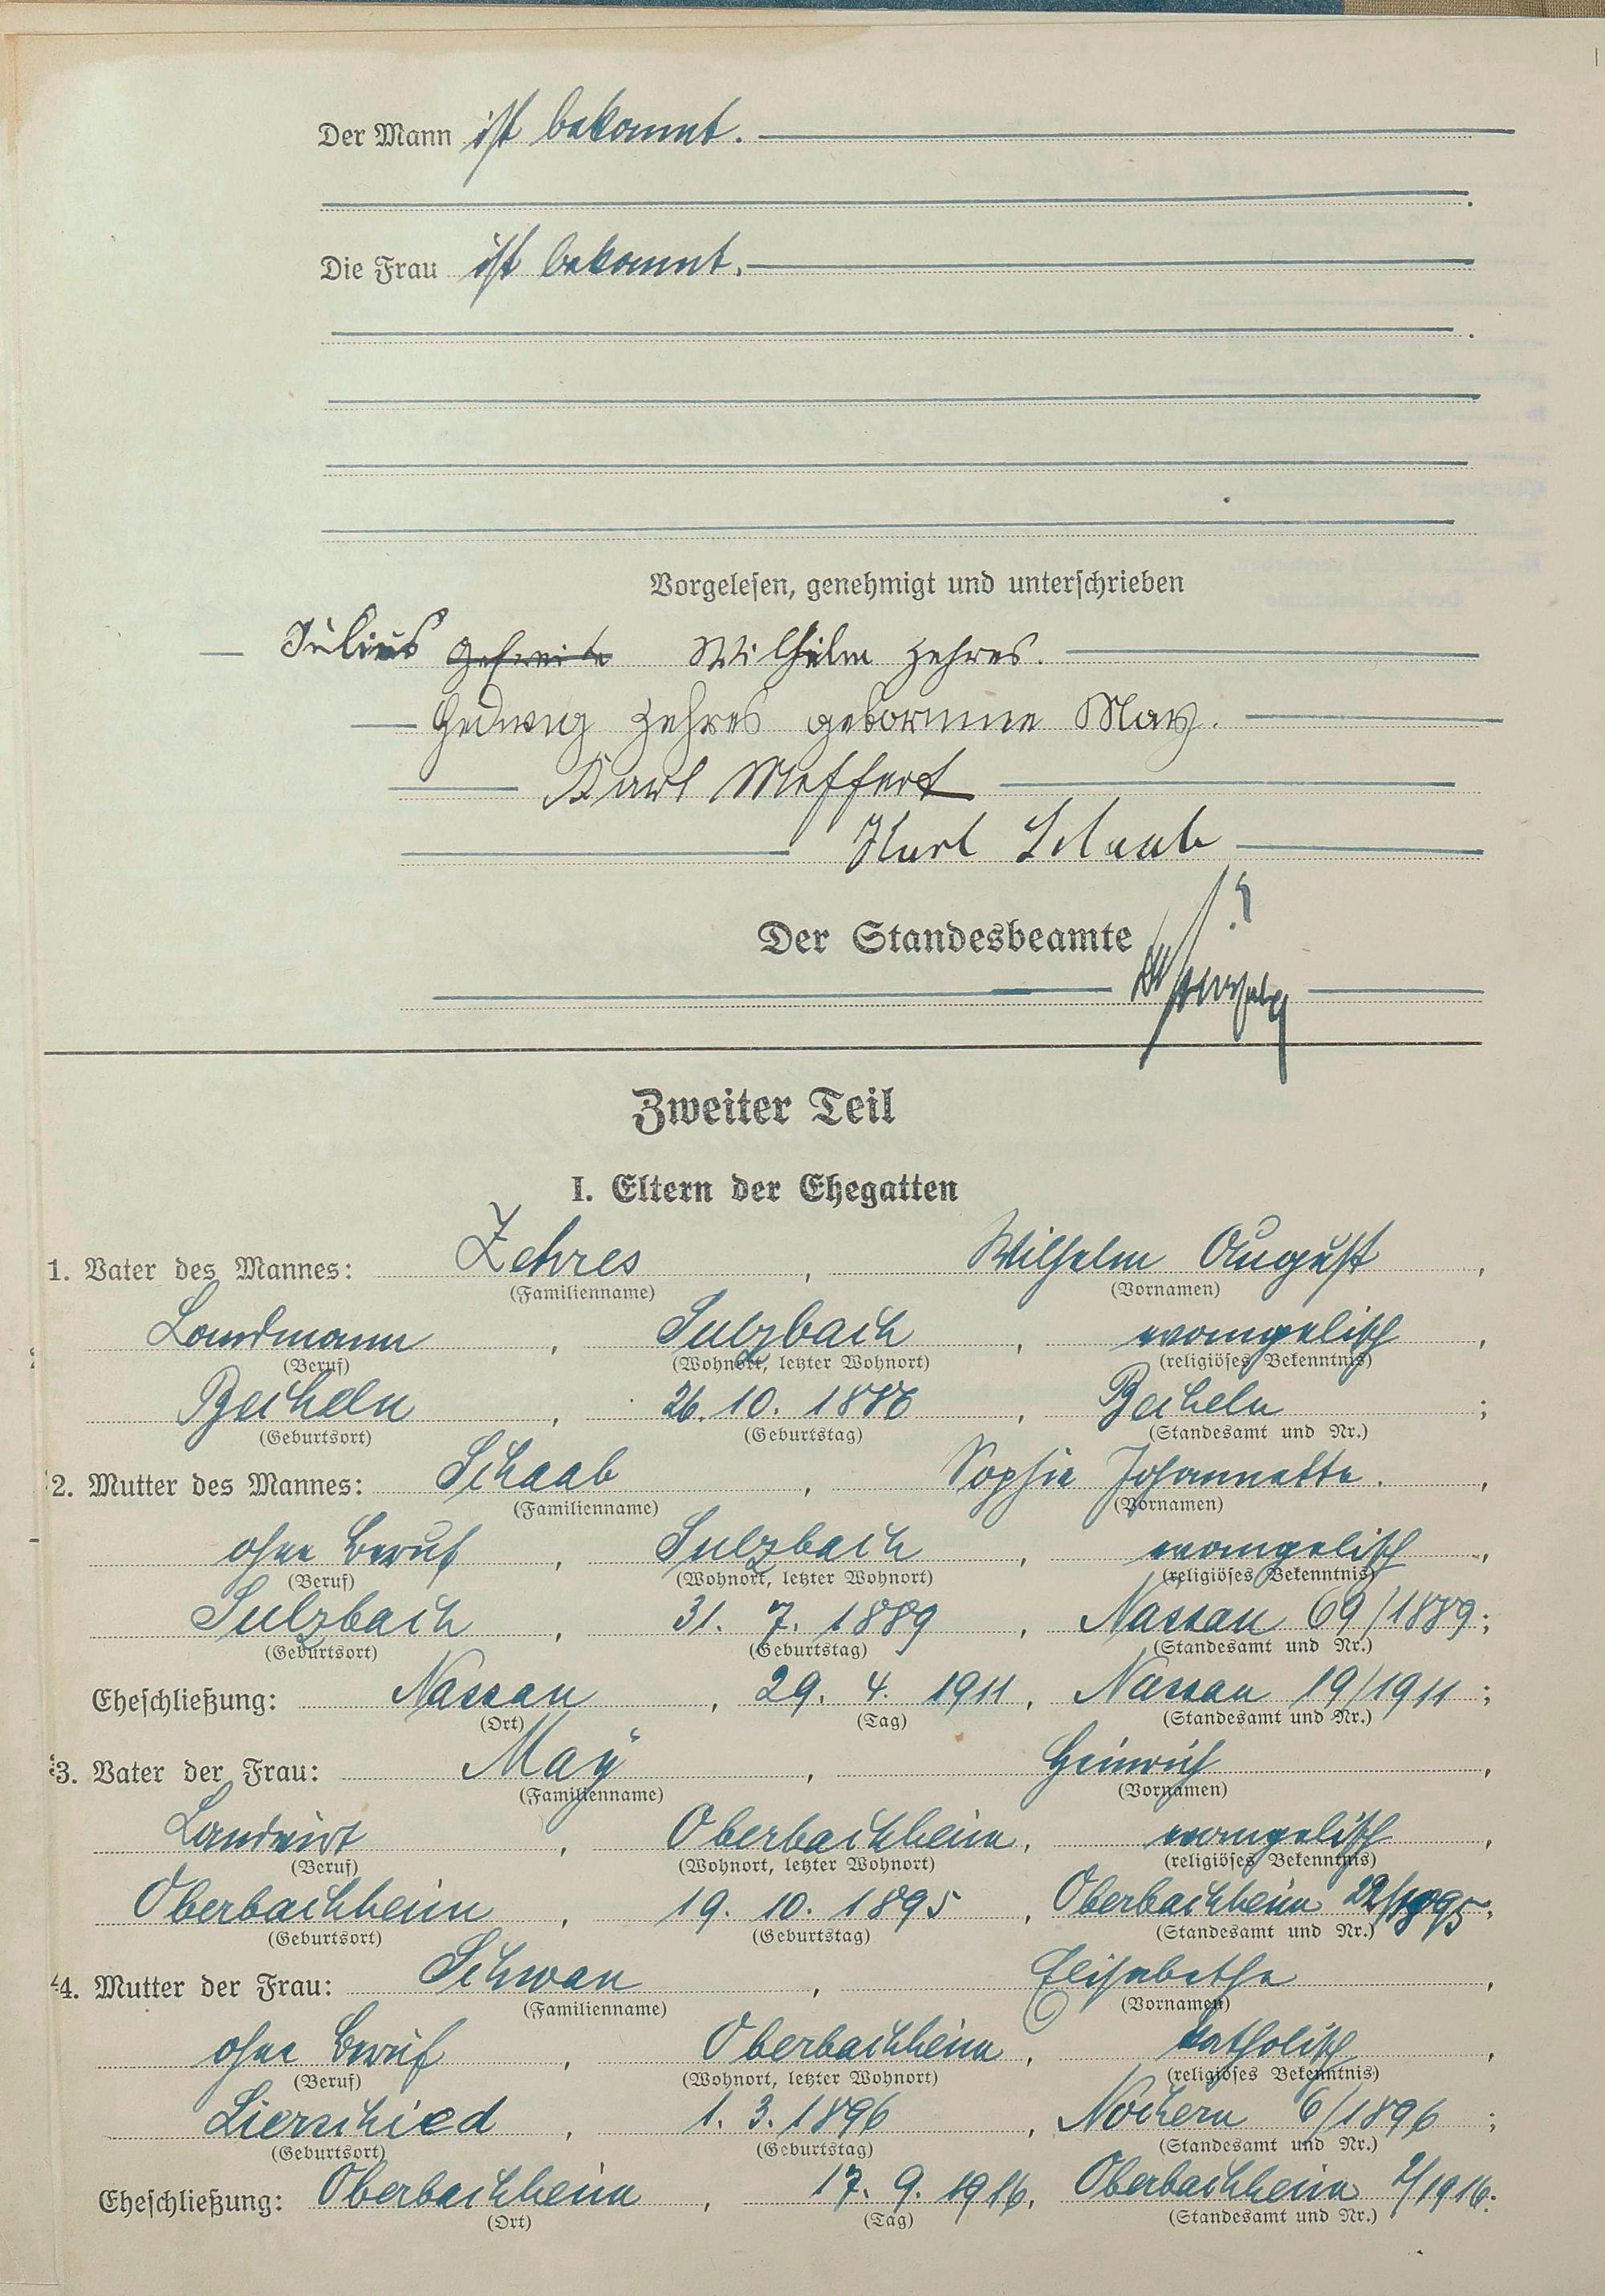 Der Mann ist bekannt.
Die Frau ist bekannt.
Vorgelesen, genehmigt und unterschrieben
Julius Gefreite Wilhelm Zehres.
Hedwig Zehres geborenne May.
Karl Meffert
Karl Schaab
Der Standesbeamte
Zweiter Teil
I. Eltern der Ehegatten
1. Vater des Mannes: Zehres, Wilhelm August,
(Familienname) (Vornamen)
Landmann, Sulzbach, evangelisch,
(Beruf) (Wohnort, letzter Wohnort) (religiöses Bekenntnis)
Becheln, 26. 10. 1886, Becheln;
(Geburtsort) (Geburtstag) (Standesamt und Nr.)
2. Mutter des Mannes: Schaab, Sophie Johannette.,
(Familienname) (Vornamen)
ohne Beruf, Sulzbach, evangelisch,
(Beruf) (Wohnort, letzter Wohnort) (religiöses Bekenntnis)
Sulzbach, 31. 7. 1889, Nassau 69/1889;
(Geburtsort) (Geburtstag) (Standesamt und Nr.)
Eheschließung: Nassau, 29. 4. 1911, Nassau 19/1911;
(Ort) (Tag) (Standesamt und Nr.)
3. Vater der Frau: Maÿ, Heinrich,
(Familienname) (Vornamen)
Landwirt, Oberbachheim, evangelisch,
(Beruf) (Wohnort, letzter Wohnort) (religiöses Bekenntnis)
Oberbachheim, 19. 10. 1895, Oberbachheim 22/1895;
(Geburtsort) (Geburtstag) (Standesamt und Nr.)
4. Mutter der Frau: Schwan, Elisabetha,
(Familienname) (Vornamen)
ohne Beruf, Oberbachheim, katholisch,
(Beruf) (Wohnort, letzter Wohnort) (religiöses Bekenntnis)
Lierschied, 1. 3. 1896, Nochern 6/1896;
(Geburtsort) (Geburtstag) (Standesamt und Nr.)
Eheschließung: Oberbachheim, 17. 9. 1916, Oberbachheim 2/1916.
(Ort) (Tag) (Standesamt und Nr.)